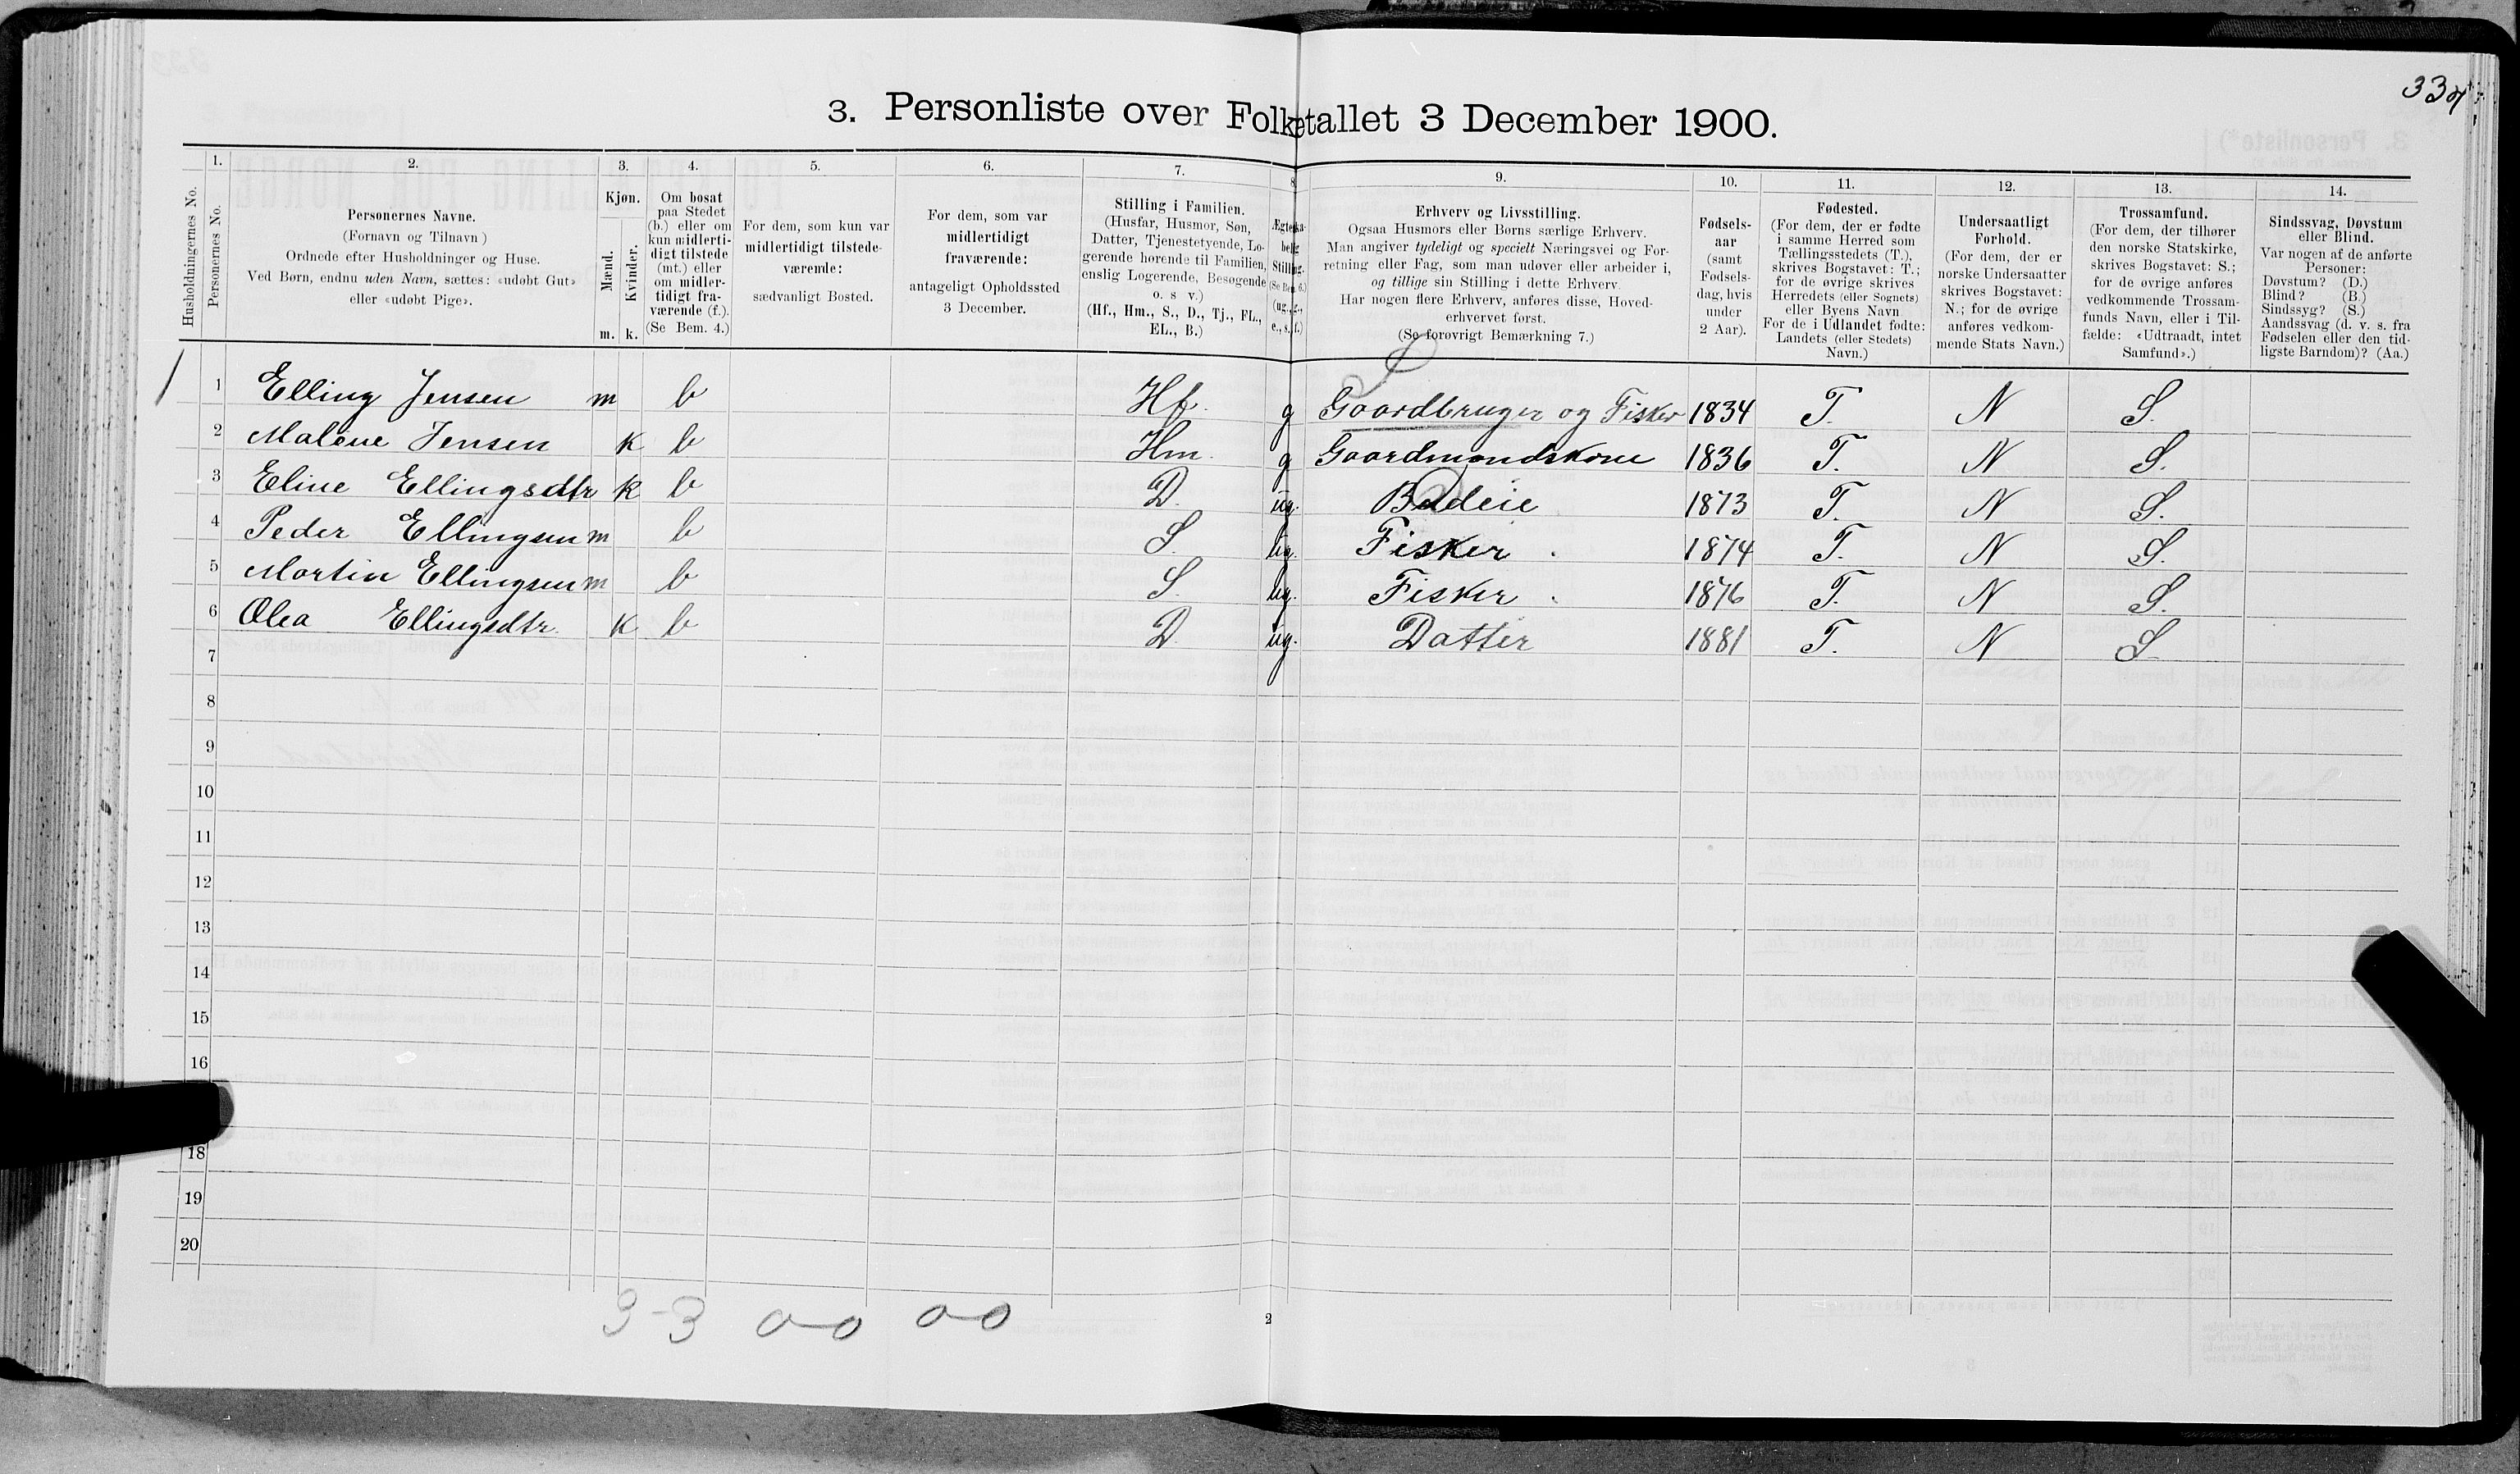 334
3. Personliste over Folketallet 3 December 1900.
Husholdningernes No.
1.
Personernes No.
2.
Personernes Navne.
(Fornavn og Tilnavn)
Ordnede efter Husholdninger og Huse.
Ved Børn, endnu uden Navn, sættes: «udøbt Gut»
eller «udøbt Pige».
3.
Kjøn.
Mænd.
Kvinder.
m. k.
4.
Om bosat
paa Stedet
(b.) eller om
kun midlerti-
digt tilstede
(mt.) eller
om midler-
tidigt fra-
værende (f.).
(Se Bem. 4.)
5.
For dem, som kun var
midlertidigt tilstede-
værende:
sædvanligt Bosted.
6.
For dem, som var
midlertidigt
fraværende:
antageligt Opholdssted
3 December.
7.
Stilling i Familien.
(Husfar, Husmor, Søn,
Datter, Tjenestetyende, Lo-
gerende hørende til Familien,
enslig Logerende, Besøgende
o. s v.)
(Hf., Hm., S., D., Tj., FL.,
EL., B.)
8.
Ægteska-
belig
Stilling.
(Se Bem. 6.)
(ug., g.,
e., s., f.)
9.
Erhverv og Livsstilling.
Ogsaa Husmors eller Børns særlige Erhverv.
Man angiver tydeligt og specielt Næringsvei og For-
retning eller Fag, som man udøver eller arbeider i,
og tillige sin Stilling i dette Erhverv.
Har nogen flere Erhverv, anføres disse, Hoved-
erhvervet først.
(Se forøvrigt Bemærkning 7.)
10.
Fødsels-
aar
(samt
Fødsels-
dag, hvis
under
2 Aar).
11.
Fødested.
(For dem, der er fødte
i samme Herred som
Tællingsstedets (T.),
skrives Bogstavet: T.;
for de øvrige skrives
Herredets (eller Sognets)
eller Byens Navn.
For de i Udlandet fødte:
Landets (eller Stedets)
Navn.)
12.
Undersaatligt
Forhold.
(For dem, der er
norske Undersaatter
skrives Bogstavet:
N.; for de øvrige
anføres vedkom-
mende Stats Navn.)
13.
Trossamfund.
(For dem, der tilhører
den norske Statskirke,
skrives Bogstavet: S.;
for de øvrige anføres
vedkommende Trossam-
funds Navn, eller i Til-
fælde: «Udtraadt, intet
Samfund».)
14.
Sindssvag, Døvstum
eller Blind.
Var nogen af de anførte
Personer:
Døvstum? (D.)
Blind? (B.)
Sindssyg? (S.)
Aandssvag (d. v. s. fra
Fødselen eller den tid-
ligste Barndom)? (Aa.)
1 1 Elling Jensen m b Hf. g Gaardbruger og Fisker 1834 T. N S.
2 Malene Jensen k b Hm. g Gaardmandskone 1836 T. N S.
3 Eline Ellingsdtr k b D. ug. Budeie 1873 T. N S.
4 Peder Ellingsen m b S. ug. Fisker 1874 T. N S.
5 Martin Ellingsen m b S. ug. Fisker 1876 T. N S.
6 Olea Ellingsdtr. k b D. ug. Datter 1881 T. N S.
7
8
9
10
11
12
13
14
15
16
18
19
20
3-3 0-0 0-0
2